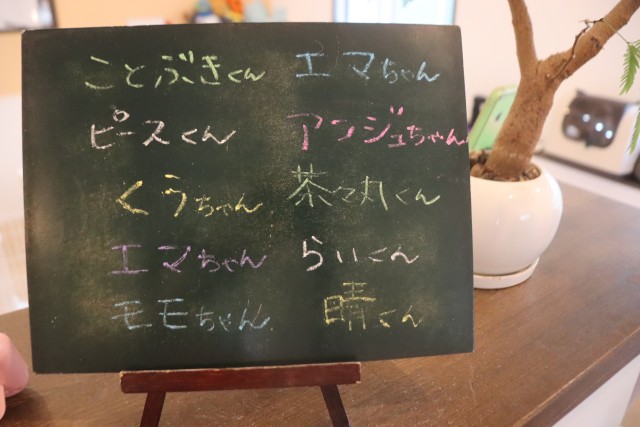 ことぶきくん エマちゃん
ピースくん アンジュちゃん
くうちゃん 茶々丸くん
エマちゃん らいくん
モモちゃん 晴くん